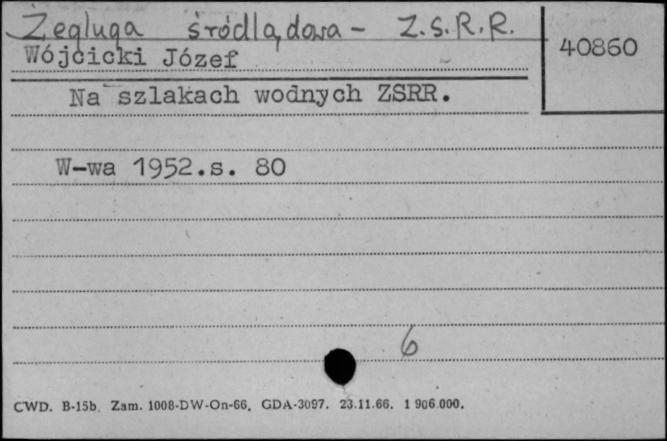 Żegluga śródlądowa - Z.S.R.R.
Wójcicki Józef
40860
Na szlakach wodnych ZSRR.
W-wa 1952.s. 80
6
CWD. B-15b. Zam. 1008-DW-On-66. GDA-3097. 23.11.66. 1 906.000.